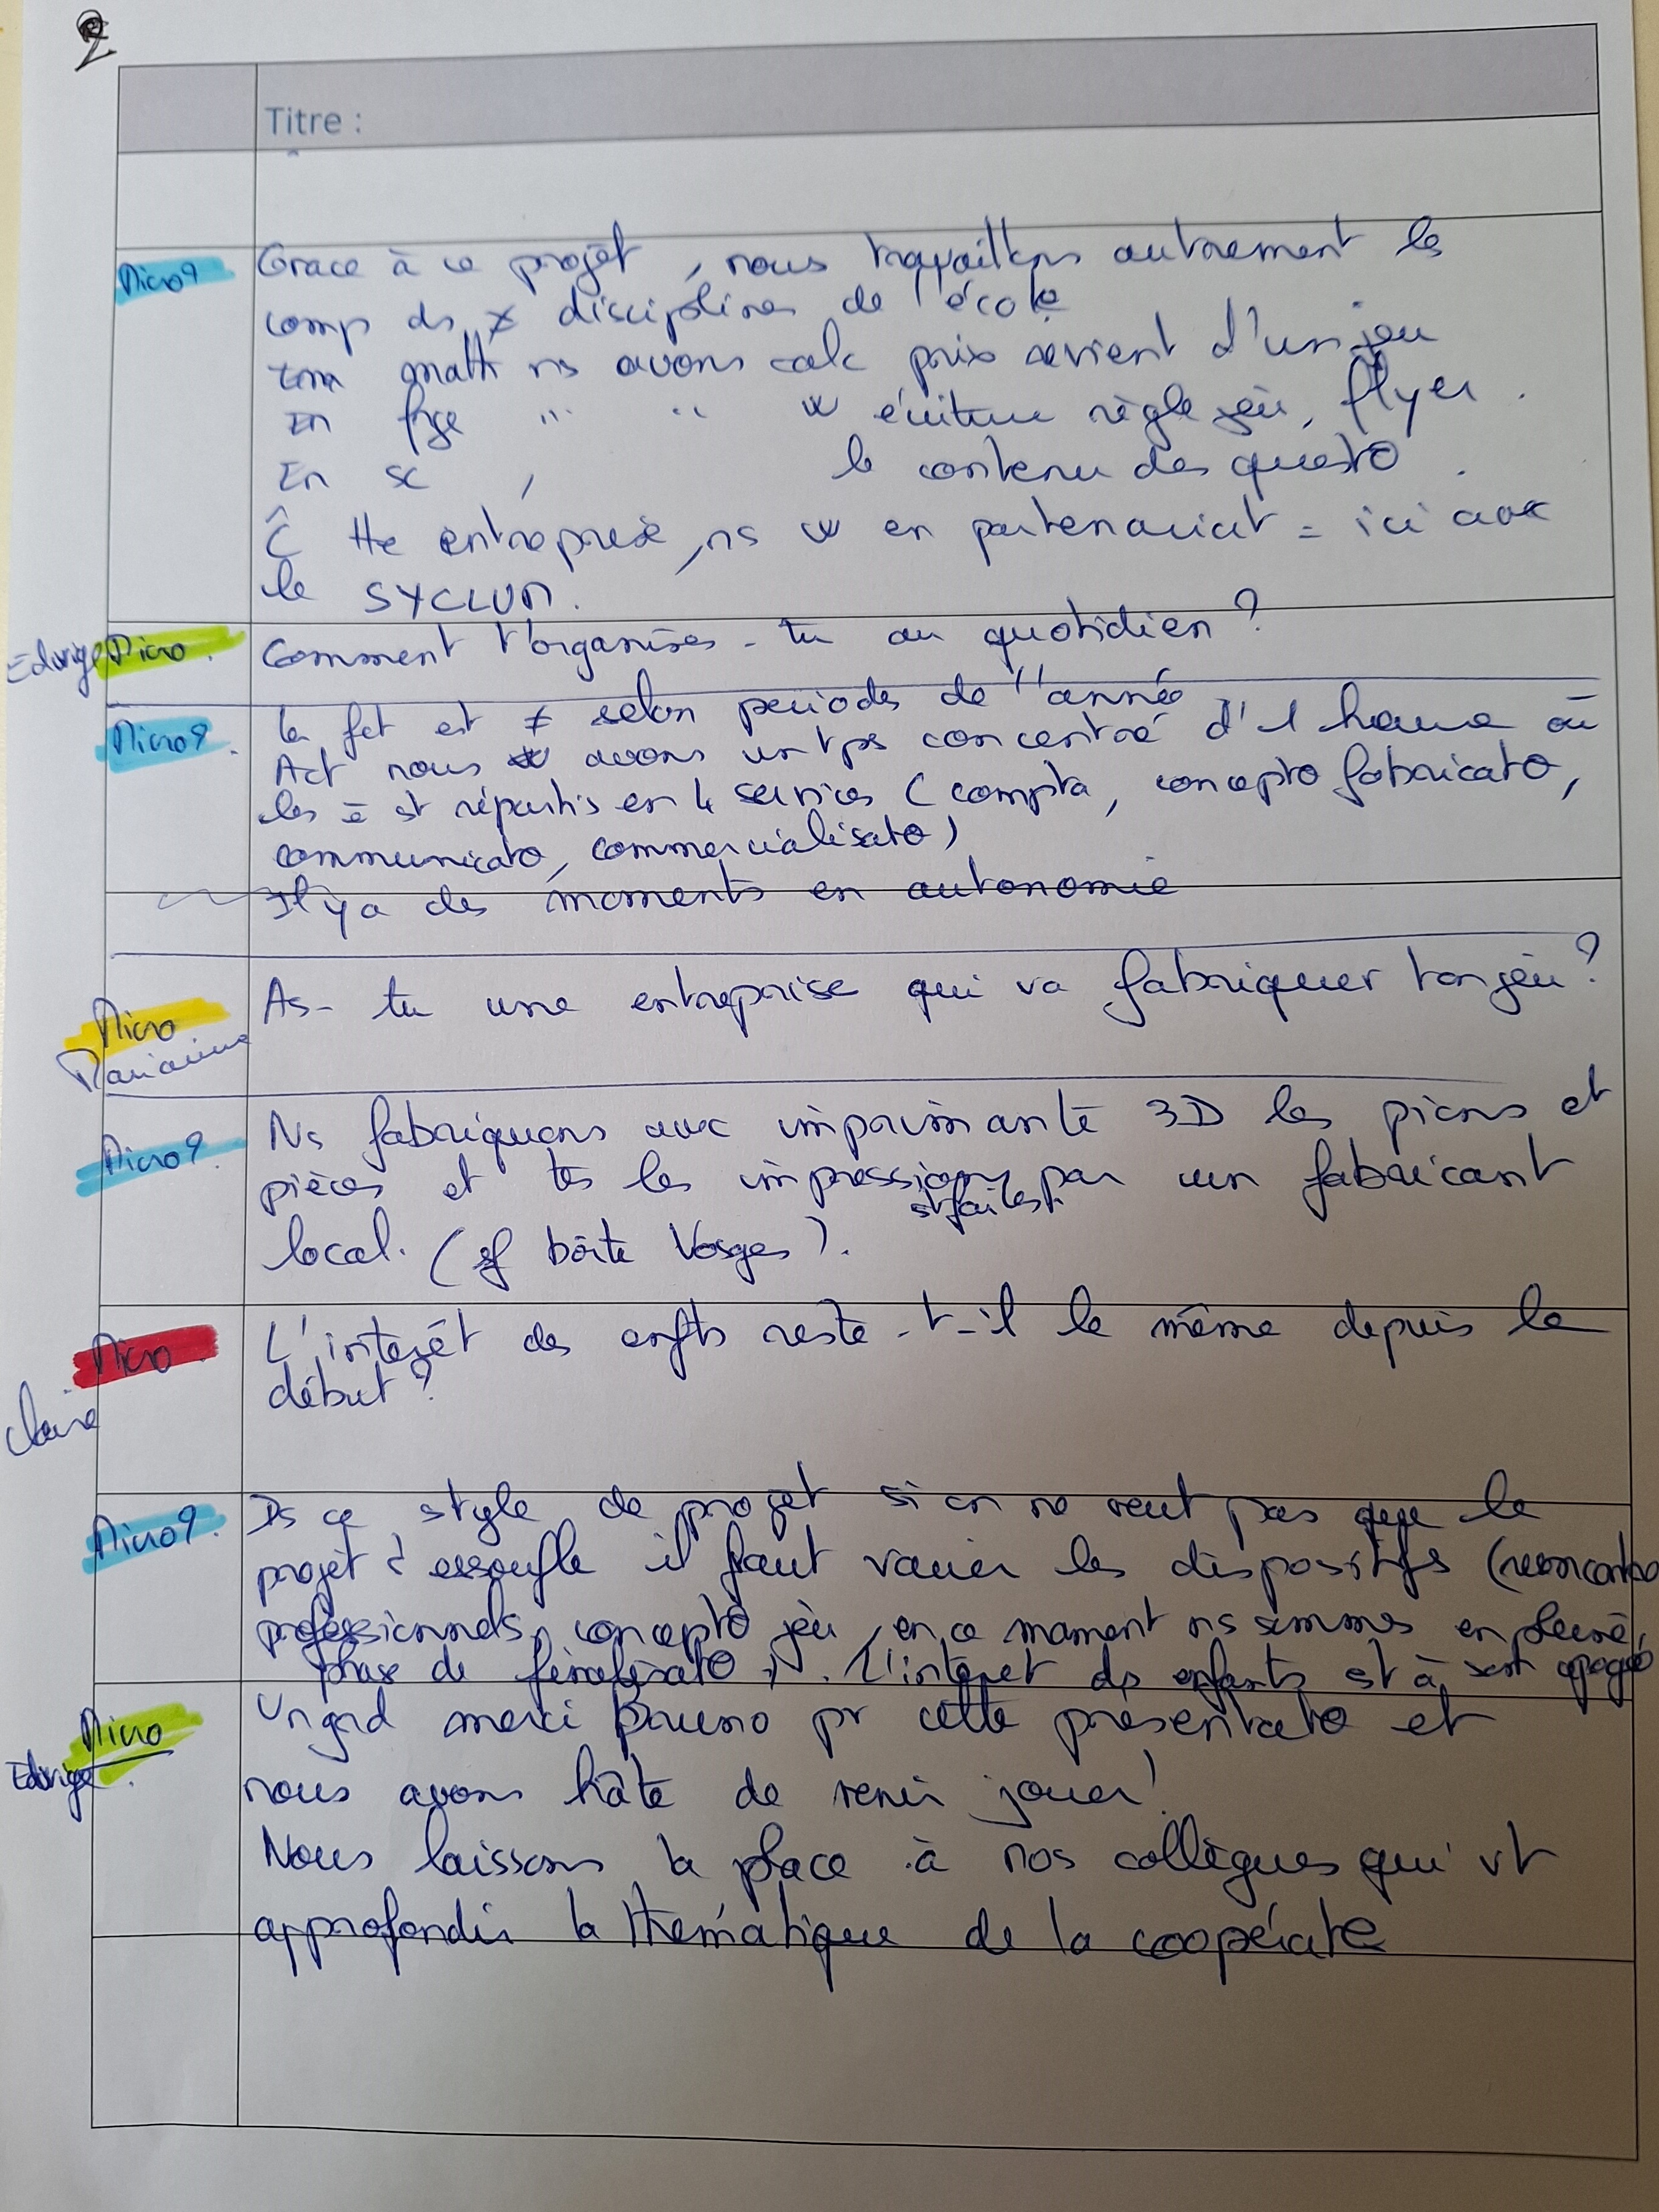 2
Titre :
Micro 9
Grace à ce projet, nous travaillons autrement les
comp ds ≠ disciplines de l'école
En math ns avons calc prix revient d'un jeu
En frçe " " écriture règle jeu, flyer.
En sc, le contenu des questo.
C̑ tte entreprise, ns en partenariat = ici avec
le SYCLUM.
Edwige Micro.
Comment t'organises-tu au quotidien ?
Micro 9.
Le fct est ≠ selon periodes de l'année
Act nous avons un tps concentré d'1 heure où
les = st répartis en 4 services (compta, concepto fabricato,
communicato, commercialisato)
Il y a des moments en autonomie
Micro
Marianne
As-tu une entreprise qui va fabriquer ton jeu ?
Micro 9.
Ns fabriquons avec imprimante 3D les pions et
pièces et tes les impressions st faites par un fabricant
local. (sf boîte Vosges).
Micro.
Claire
L'interêt des enfts reste-t-il le même depuis le
début ?
Micro 9.
Ds ce style de projet si on ne veut pas que le
projet s'essoufle il faut varier les dispositifs (rencontre
professionnels, concepto jeu, en ce moment ns sommes en pleine
phase de finalisato). L'interet des enfants est à son apogée
Micro
Edwige.
Un grd merci Bruno pr cette présentato et
nous avons hâte de venir jouer !
Nous laissons la place à nos collègues qui vt
approfondir la thématique de la coopérato